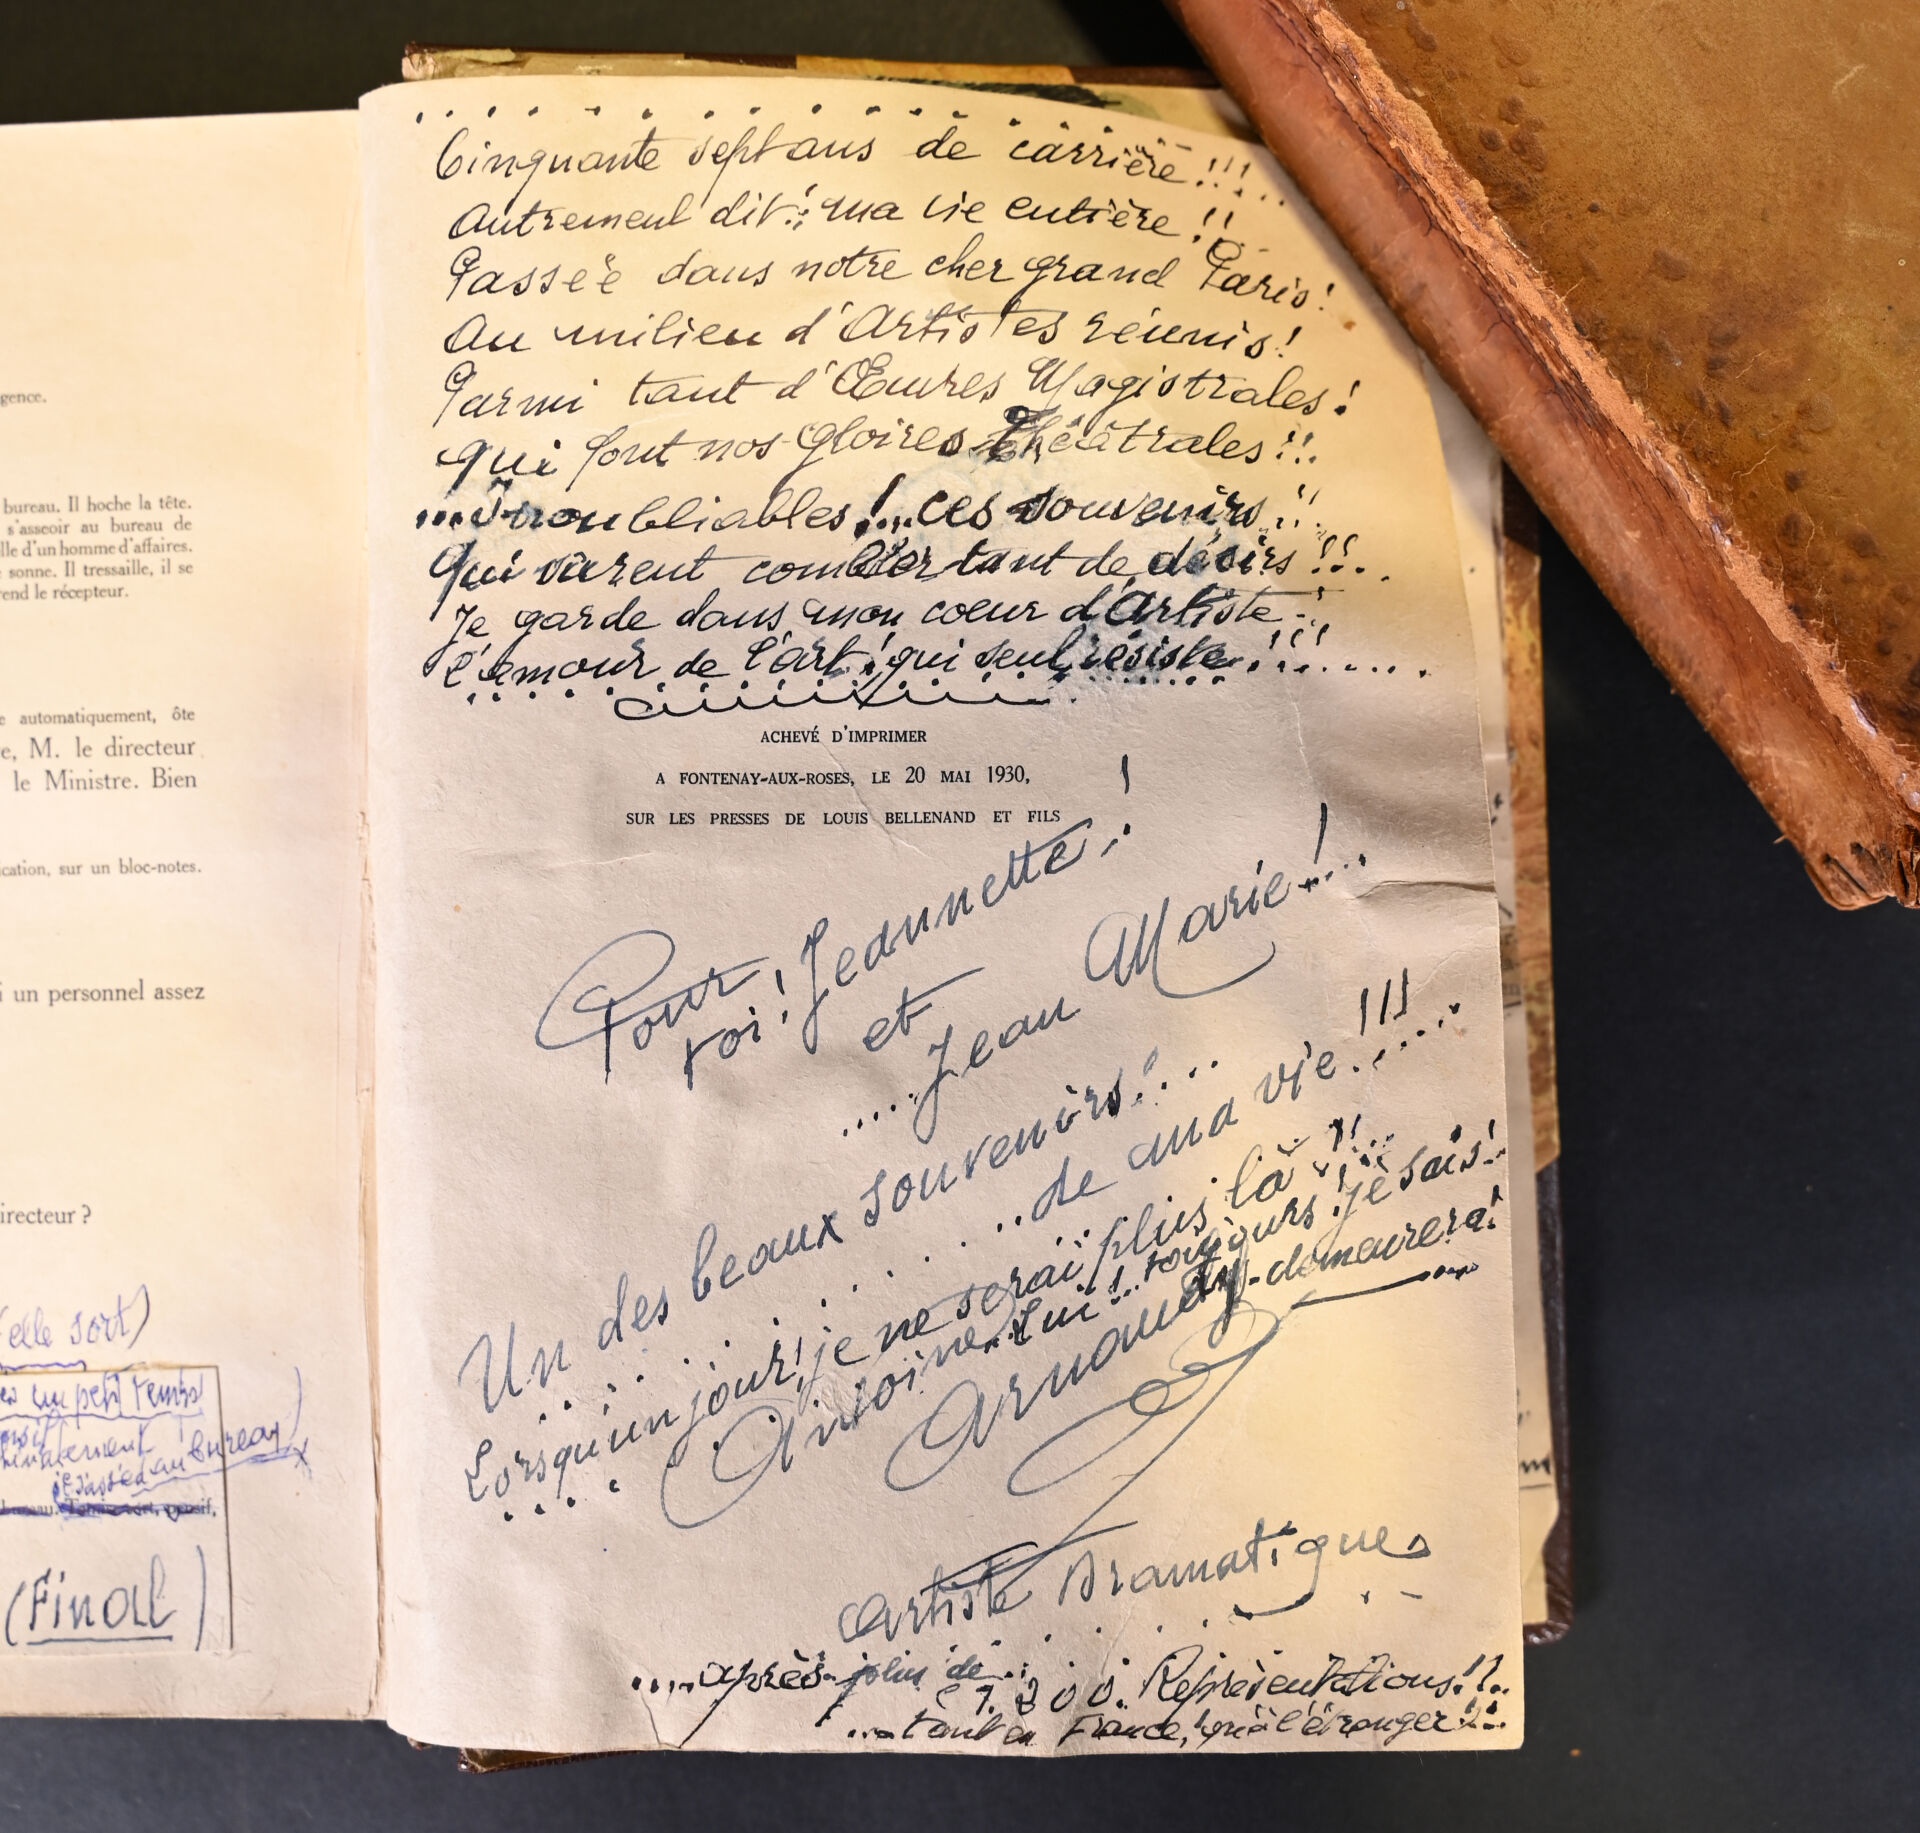 gence.
bureau. Il hoche la tête.
s'asseoir au bureau de
lle d'un homme d'affaires.
sonne. Il tressaille, il se
rend le récepteur.
e automatiquement, ôte
e, M. le directeur
le Ministre. Bien
ication, sur un bloc-notes.
i un personnel assez
irecteur ?
(elle sort)
un petit temps
au bureau)
(Final)
Cinquante sept ans de carrière!!!..
Autrement dit!: ma vie entière!!
Passée dans notre cher grand Paris!
Au milieu d'Artistes réunis!
Parmi tant d'Œuvres Magistrales!
qui font nos gloires Théâtrales!!.
...Inoubliables!...ces souvenirs!!
Qui surent combler tant de désirs!!!..
Je garde dans mon coeur d'Artiste!
L'amour de l'art! qui seul résiste!!!.....
ACHEVÉ D'IMPRIMER
A FONTENAY-AUX-ROSES, LE 20 MAI 1930,
SUR LES PRESSES DE LOUIS BELLENAND ET FILS
Pour toi! Jeannette!
et
....Jean Marie!...
Un des beaux souvenirs!...
..de ma vie!!!.....
Lorsqu'un jour! je ne serai plus là!!
Antoine.. Lui!...toujours! je sais!
Arnaudy-demeurera!
Artiste Dramatique
....après plus de
Représentations!!..
...tant en France, qu'à l'étranger!!..